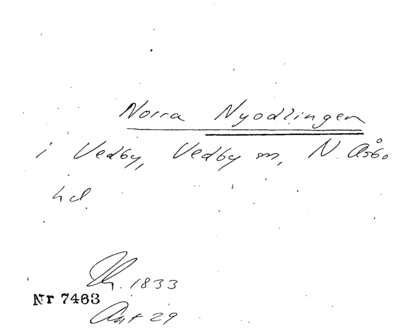 Norra Nyodlingen
i Vedby, Vedby sn, N. Åsbo
hd.
Th. 1833
Nr 7463
Ant 29